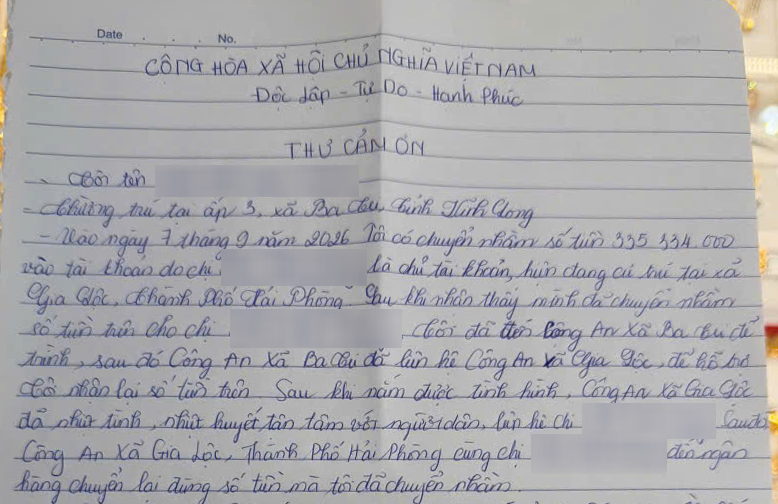 Date . . . No.
CỘNG HÒA XÃ HỘI CHỦ NGHĨA VIỆT NAM
Độc Lập - Tự Do - Hạnh Phúc
THƯ CẢM ƠN
- Tôi tên
- Thường trú tại ấp 3, xã Ba Tu, tỉnh Vĩnh Long
- Vào ngày 7 tháng 9 năm 2026 Tôi có chuyển nhầm số tiền 335 334.000
vào tài khoản do chị là chủ tài khoản, hiện đang cư trú tại xã
Gia Lộc, Thành Phố Hải Phòng. Sau khi nhận thấy mình đã chuyển nhầm
số tiền trên cho chị , Tôi đã đến Công An Xã Ba Tu để
trình, sau đó Công An Xã Ba Tu đã liên hệ Công An Xã Gia Lộc, để hỗ trợ
tôi nhận lại số tiền trên. Sau khi nắm được tình hình, Công An Xã Gia Lộc
đã nhiệt tình, nhiệt huyết, tận tâm với người dân, liên hệ chị Sau đó
Công An Xã Gia Lộc, Thành Phố Hải Phòng cùng chị đến ngân
hàng chuyển lại đúng số tiền mà tôi đã chuyển nhầm.